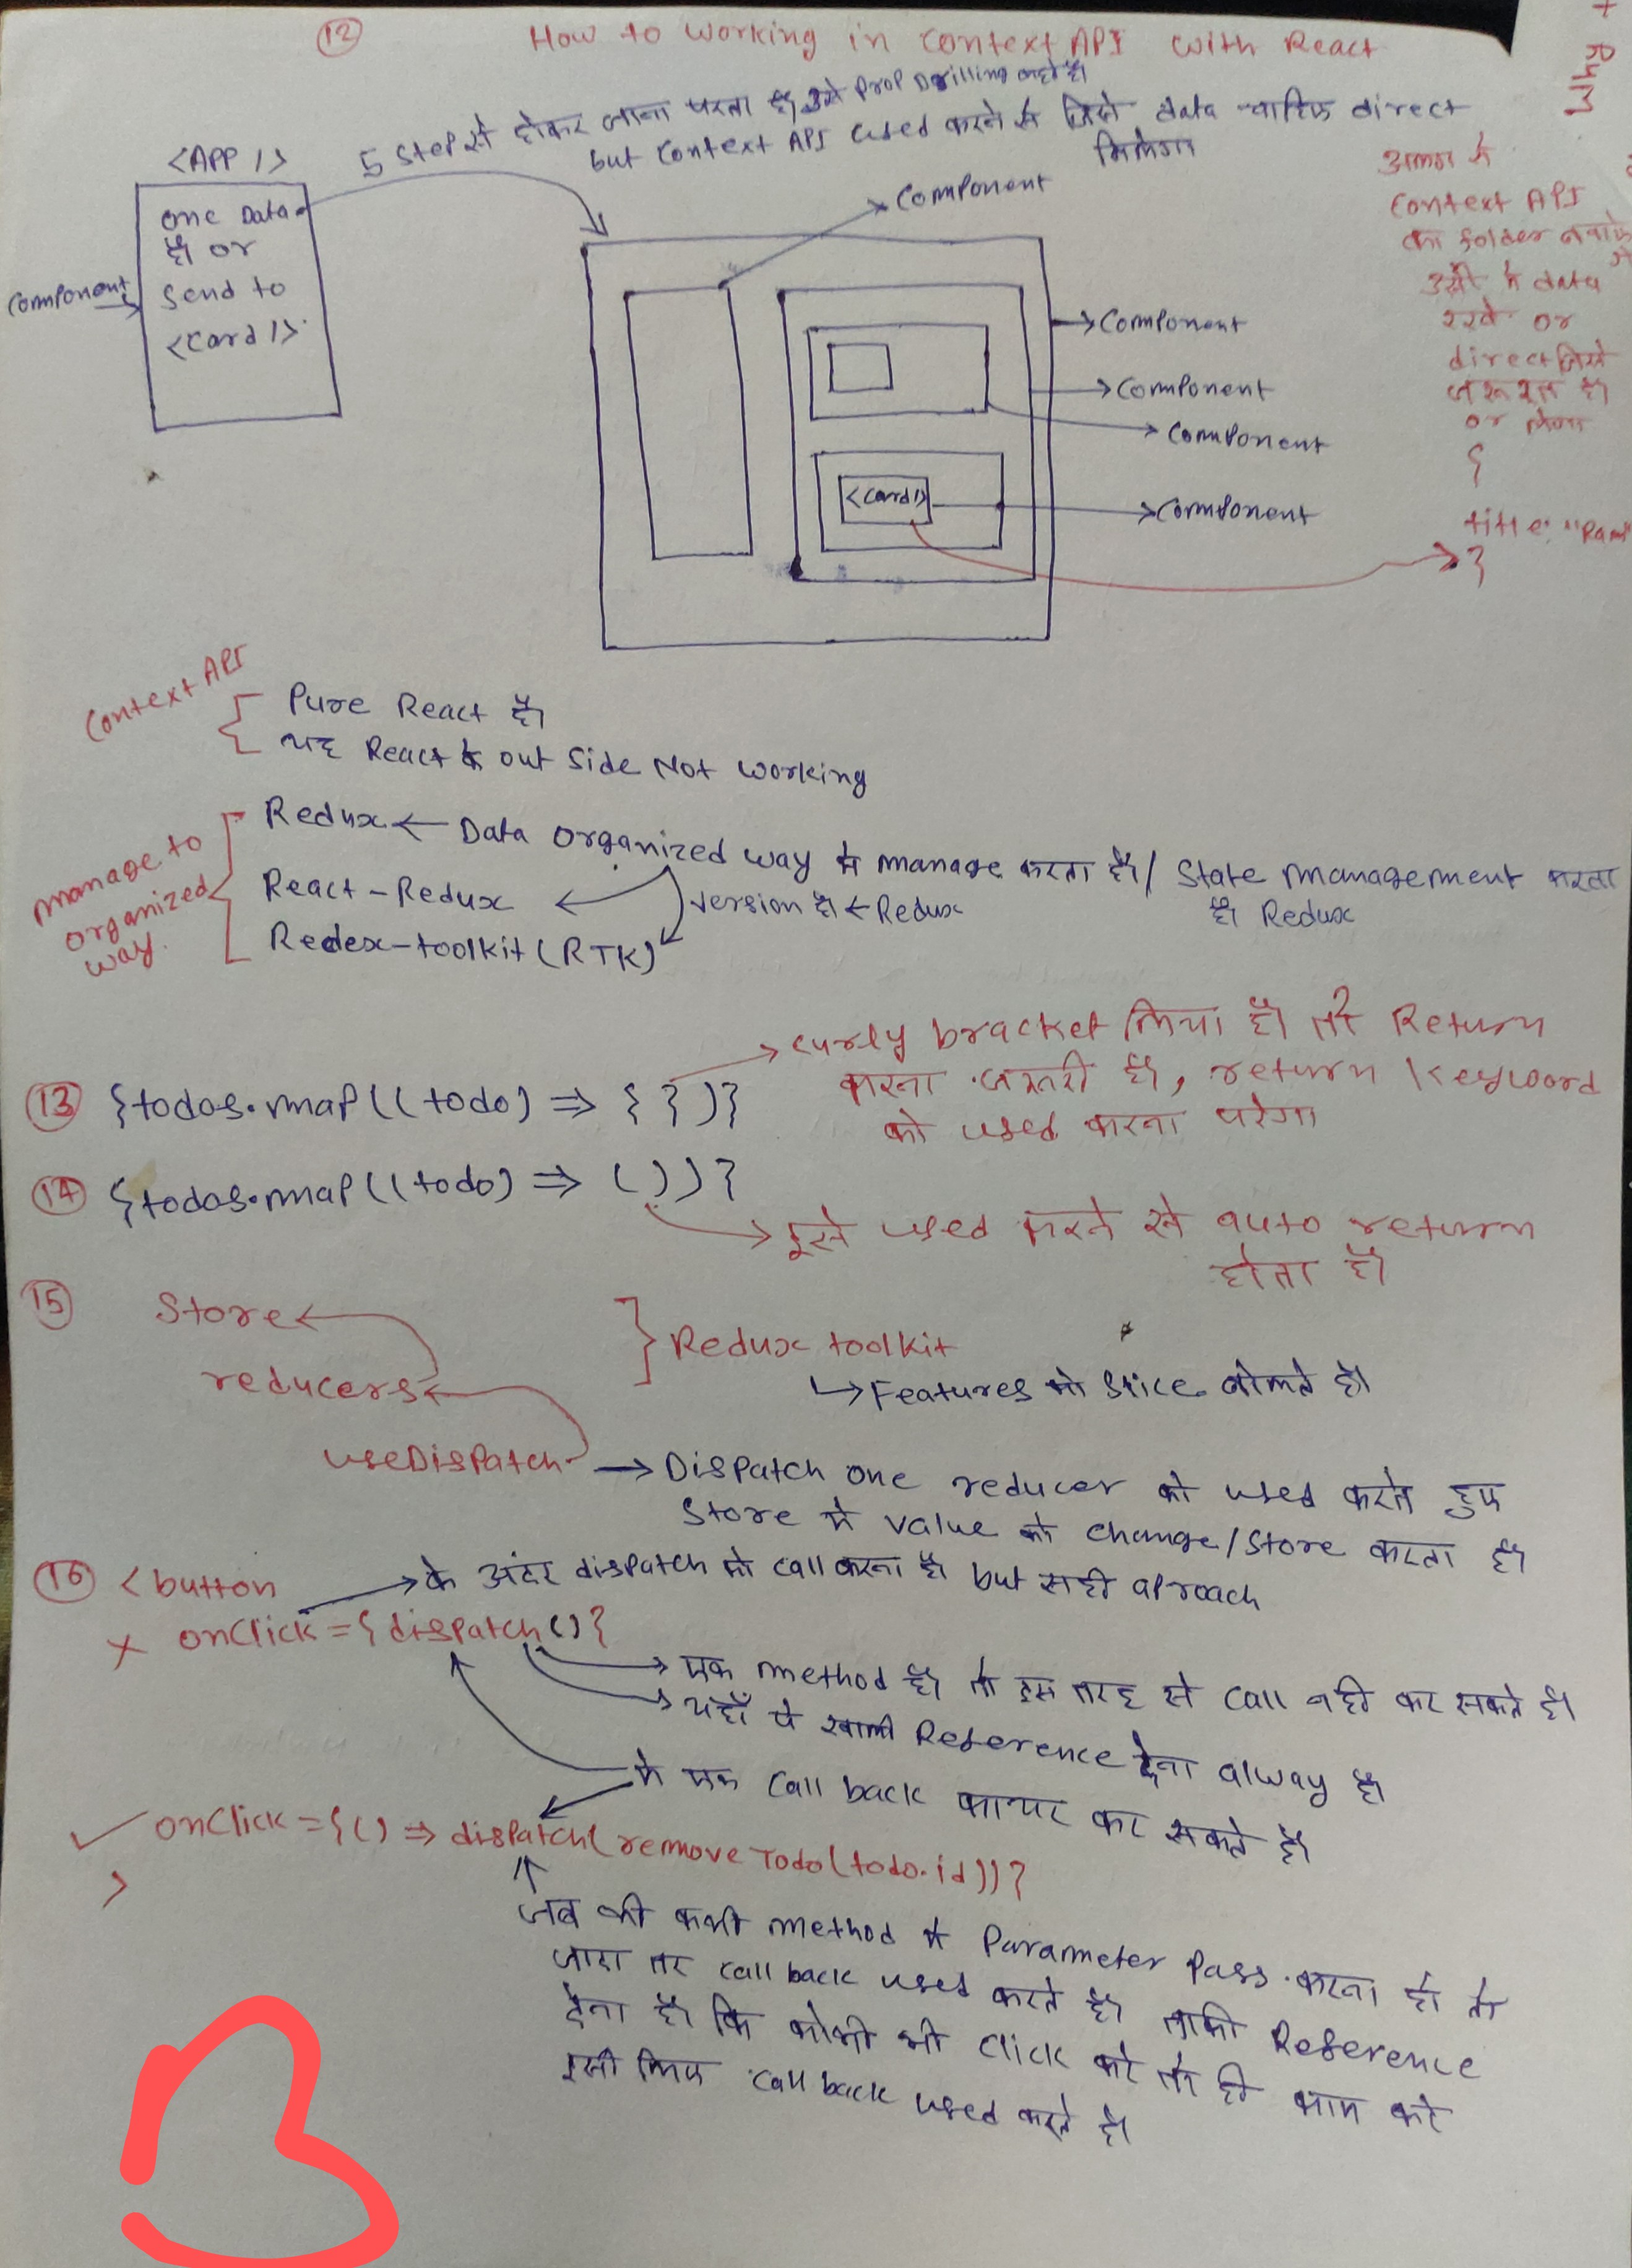 12 How to working in Context API with React
5 step से होकर जाना परता है, उसे Prop Drilling कहते है।
but Context API used करने से जिसे data चाहिए direct
मिलेगा
<APP />
one Data
है or
send to
<Card />
Component
Component
Component
Component
Component
<Card />
Component
अलग से
Context API
का folder बनाके
उसी में data
रखे or
direct जिसे
जरूरत है।
or
{
title: "Ram"
}
Context API
Pure React है।
यह React के out side Not working
manage to
organized
way.
Redux ← Data organized way से manage करता है। / State management करता
है Redux
React-Redux ← version है ← Redux
Redex-toolkit (RTK)
13 {todos.map((todo) => { })}
curly bracket लिया है। तो Return
करना जरूरी है, return keyword
को used करना परेगा
14 {todos.map((todo) => ( ))}
इसे used करने से auto return
होता है।
15 Store
reducers
} Redux toolkit
→ Features को slice बोलते है।
useDispatch → Dispatch one reducer को used करते हुए
Store में value को change/store करता है।
16 <button → के अंदर dispatch को call करना है। but सही aproach
x onClick={dispatch()}
एक method है। तो इस तरह से call नही कर सकते है।
यहाँ पे खाली Reference देना alway है।
में एक call back फायर कर सकते है।
✓ onClick={() => dispatch(removeTodo(todo.id))}
>
जब भी कभी method में Parameter Pass करना हो तो
call back used करते है। ताकी Reference
देना है। कि कोभी भी click करे तो ही काम करे
इसी लिए call back used करते है।